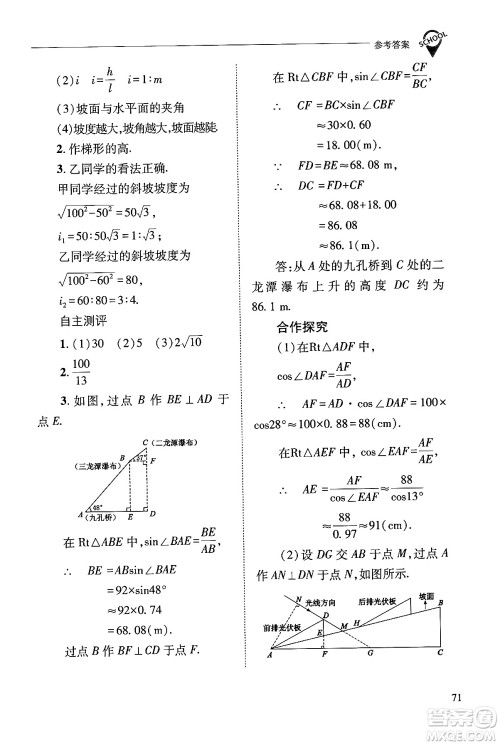 参考答案
SCHOOL
(2)i i=h/l i=1:m
(3)坡面与水平面的夹角
(4)坡度越大,坡角越大,坡面越陡.
2.作梯形的高.
3.乙同学的看法正确.
甲同学经过的斜坡坡度为
√(100²-50²)=50√3,
i₁=50:50√3=1:√3
乙同学经过的斜坡坡度为
√(100²-60²)=80
i₂=60:80=3:4.
自主测评
1.(1)30 (2)5 (3)2√10
2.100/13
3.如图,过点 B 作 BE⊥AD 于
点 E.
C(二龙潭瀑布)
B 47° F
(三龙潭瀑布)
48°
A(九孔桥) E D
在 Rt△ABE 中,sin∠BAE=BE/AB
∴ BE=ABsin∠BAE
=92×sin48°
≈92×0.74
=68.08(m).
过点 B 作 BF⊥CD 于点 F.
在 Rt△CBF 中,sin∠CBF=CF/BC,
∴ CF=BC×sin∠CBF
≈30×0.60
=18.00(m).
∵ FD=BE=68.08(m),
∴ DC=FD+CF
≈68.08+18.00
=86.08
≈86.1(m).
答:从 A 处的九孔桥到 C 处的二
龙潭瀑布上升的高度 DC 约为
86.1 m.
合作探究
(1)在Rt△ADF 中,
cos∠DAF=AF/AD,
∴ AF=AD·cos∠DAF=100×
cos28°≈100×0.88=88(m)
在Rt△AEF 中,cos∠EAF=AF/AE,
∴ AE=AF/cos∠EAF≈88/cos∠EAF≈
88/0.97≈91(cm).
(2)设 DG 交 AB 于点 M,过点
A 作 AN⊥DN 于点 N,如图所示.
N 光线方向 后排光伏板 坡面
前排光伏板 D B
E M H
A F G C
71